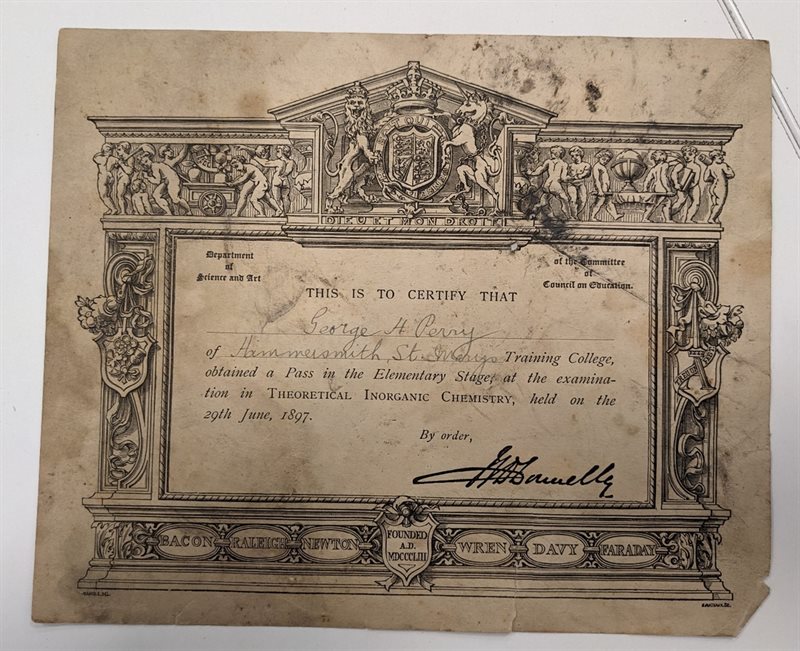 DIEU ET MON DROIT
Department
of
Science and Art
of the Committee
of
Council on Education.
THIS IS TO CERTIFY THAT
George H Perry
of Hammersmith, St. Marys Training College,
obtained a Pass in the Elementary Stage, at the examina-
tion in THEORETICAL INORGANIC CHEMISTRY, held on the
29th June, 1897.
By order,
JFDDonnelly
BACON RALEIGH NEWTON
FOUNDED
A.D.
MDCCCLIII
WREN DAVY FARADAY